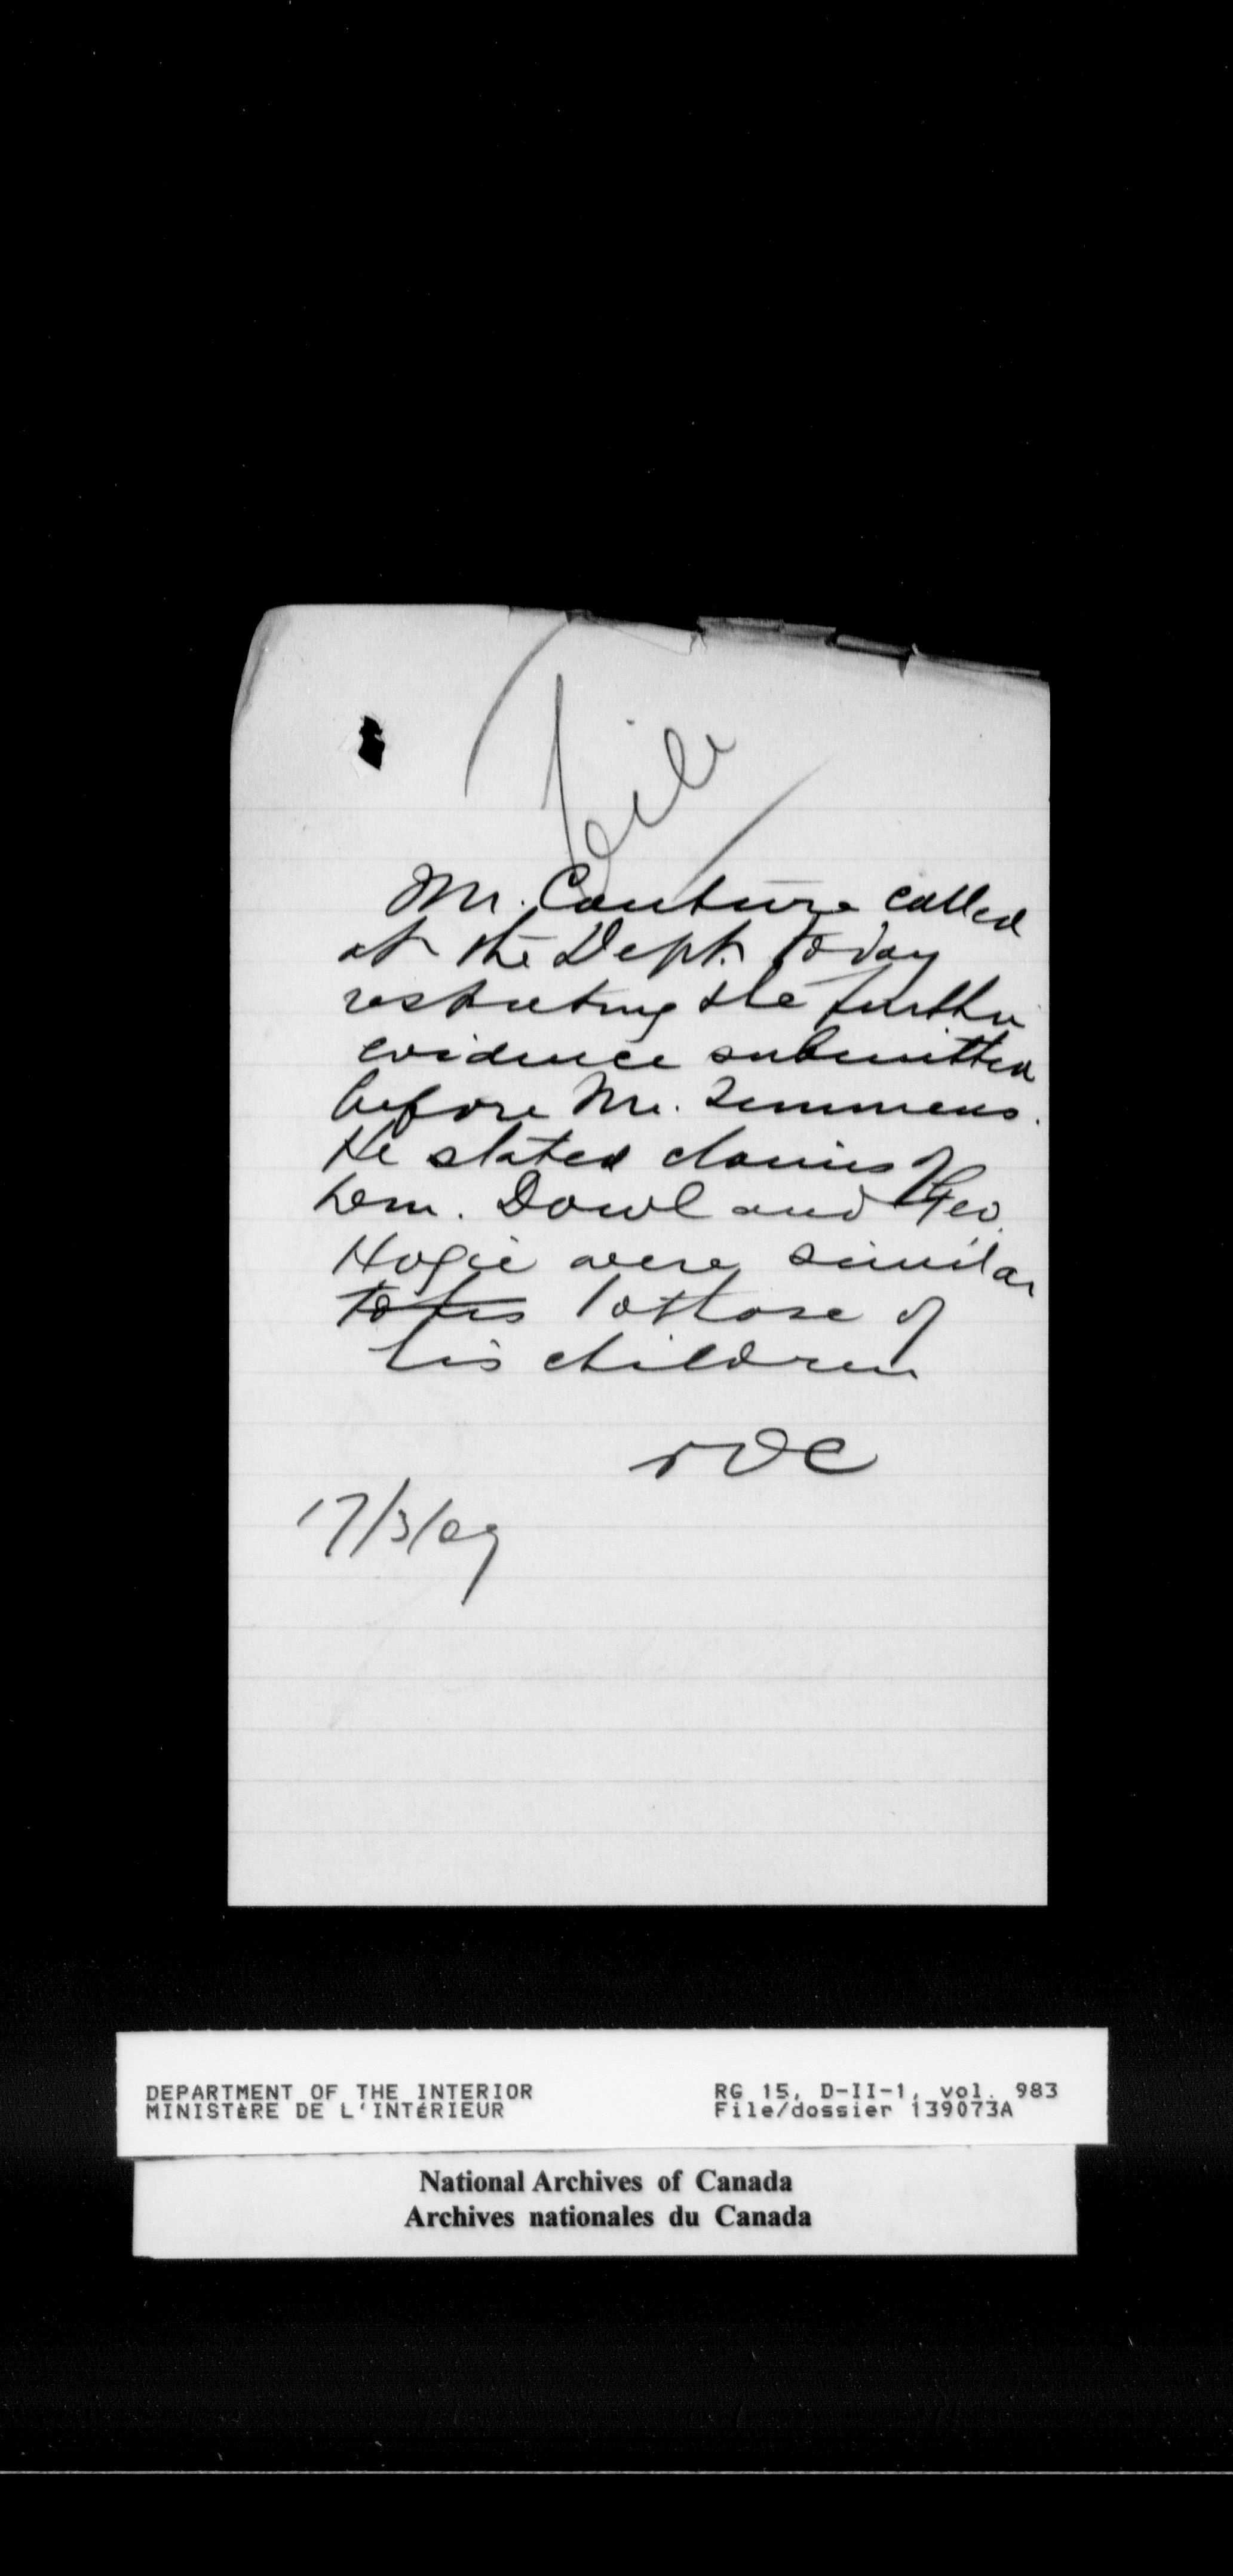 File
Mr. Couture called
at the Dept. today
respecting the further
evidence submitted
before Mr. Semmens.
He stated claims of
Wm. Dowl and Geo.
Hogie were similar
to his to those of
his children
17/3/09
DEPARTMENT OF THE INTERIOR
MINISTÈRE DE L'INTÉRIEUR
RG 15, D-II-1, vol. 983
File/dossier 139073A
National Archives of Canada
Archives nationales du Canada